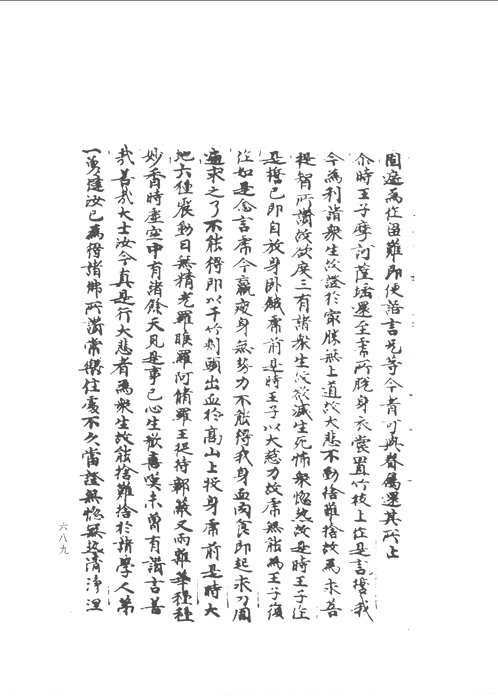 固遮為作留難即便語言兄等今者可與眷屬還其所止
尒時王子摩訶薩埵還至虎所脫身衣裳置竹枝上作是言擔我
今為利諸衆生故證於最勝无上道故大悲不動捨難捨故為求菩
提智所讚故欲度三有諸衆生故欲滅生死怖畏惱熱故是時王子作
是擔已即自放身卧餓虎前是時王子以大慈力故虎無能為王子復
作如是念言虎今羸瘦身無勢力不能得我身血肉食即起求刀周
遍求之了不能得即以干竹刺頸出血於高山上投身虎前是時大
地六種震動日無精光羅睺羅阿脩羅王捉持鄣蔽又雨雜華種種
妙香時虛空中有諸餘天見是事已心生歡喜嘆未曾有讚言善
哉善哉大士汝今真是行大悲者為衆生故能捨難捨於諸學人第
一勇健汝已為得諸佛所讚常樂住處不久當證無惱無熱清淨涅
六八九